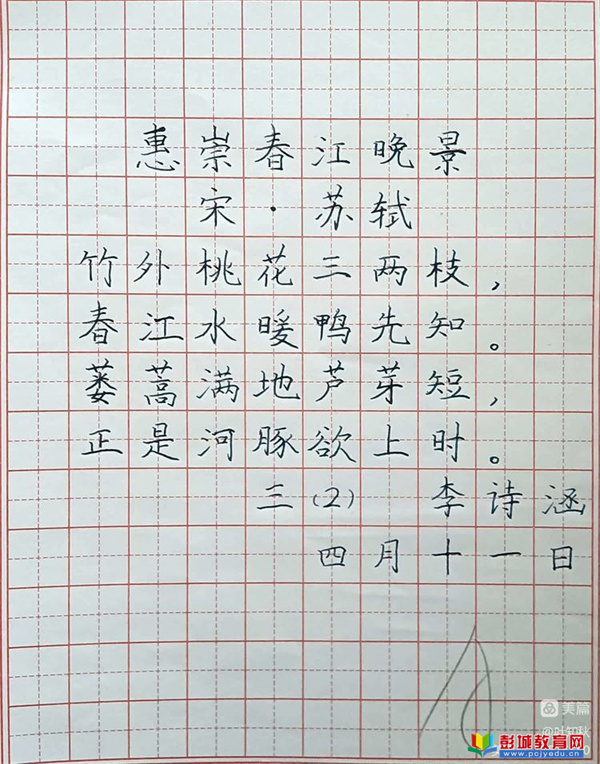 惠崇春江晚景
宋·苏轼
竹外桃花三两枝，
春江水暖鸭先知。
蒌蒿满地芦芽短，
正是河豚欲上时。
三(2) 李诗涵
四月十一日
美篇
彭城教育网
www.pcjyedu.cn